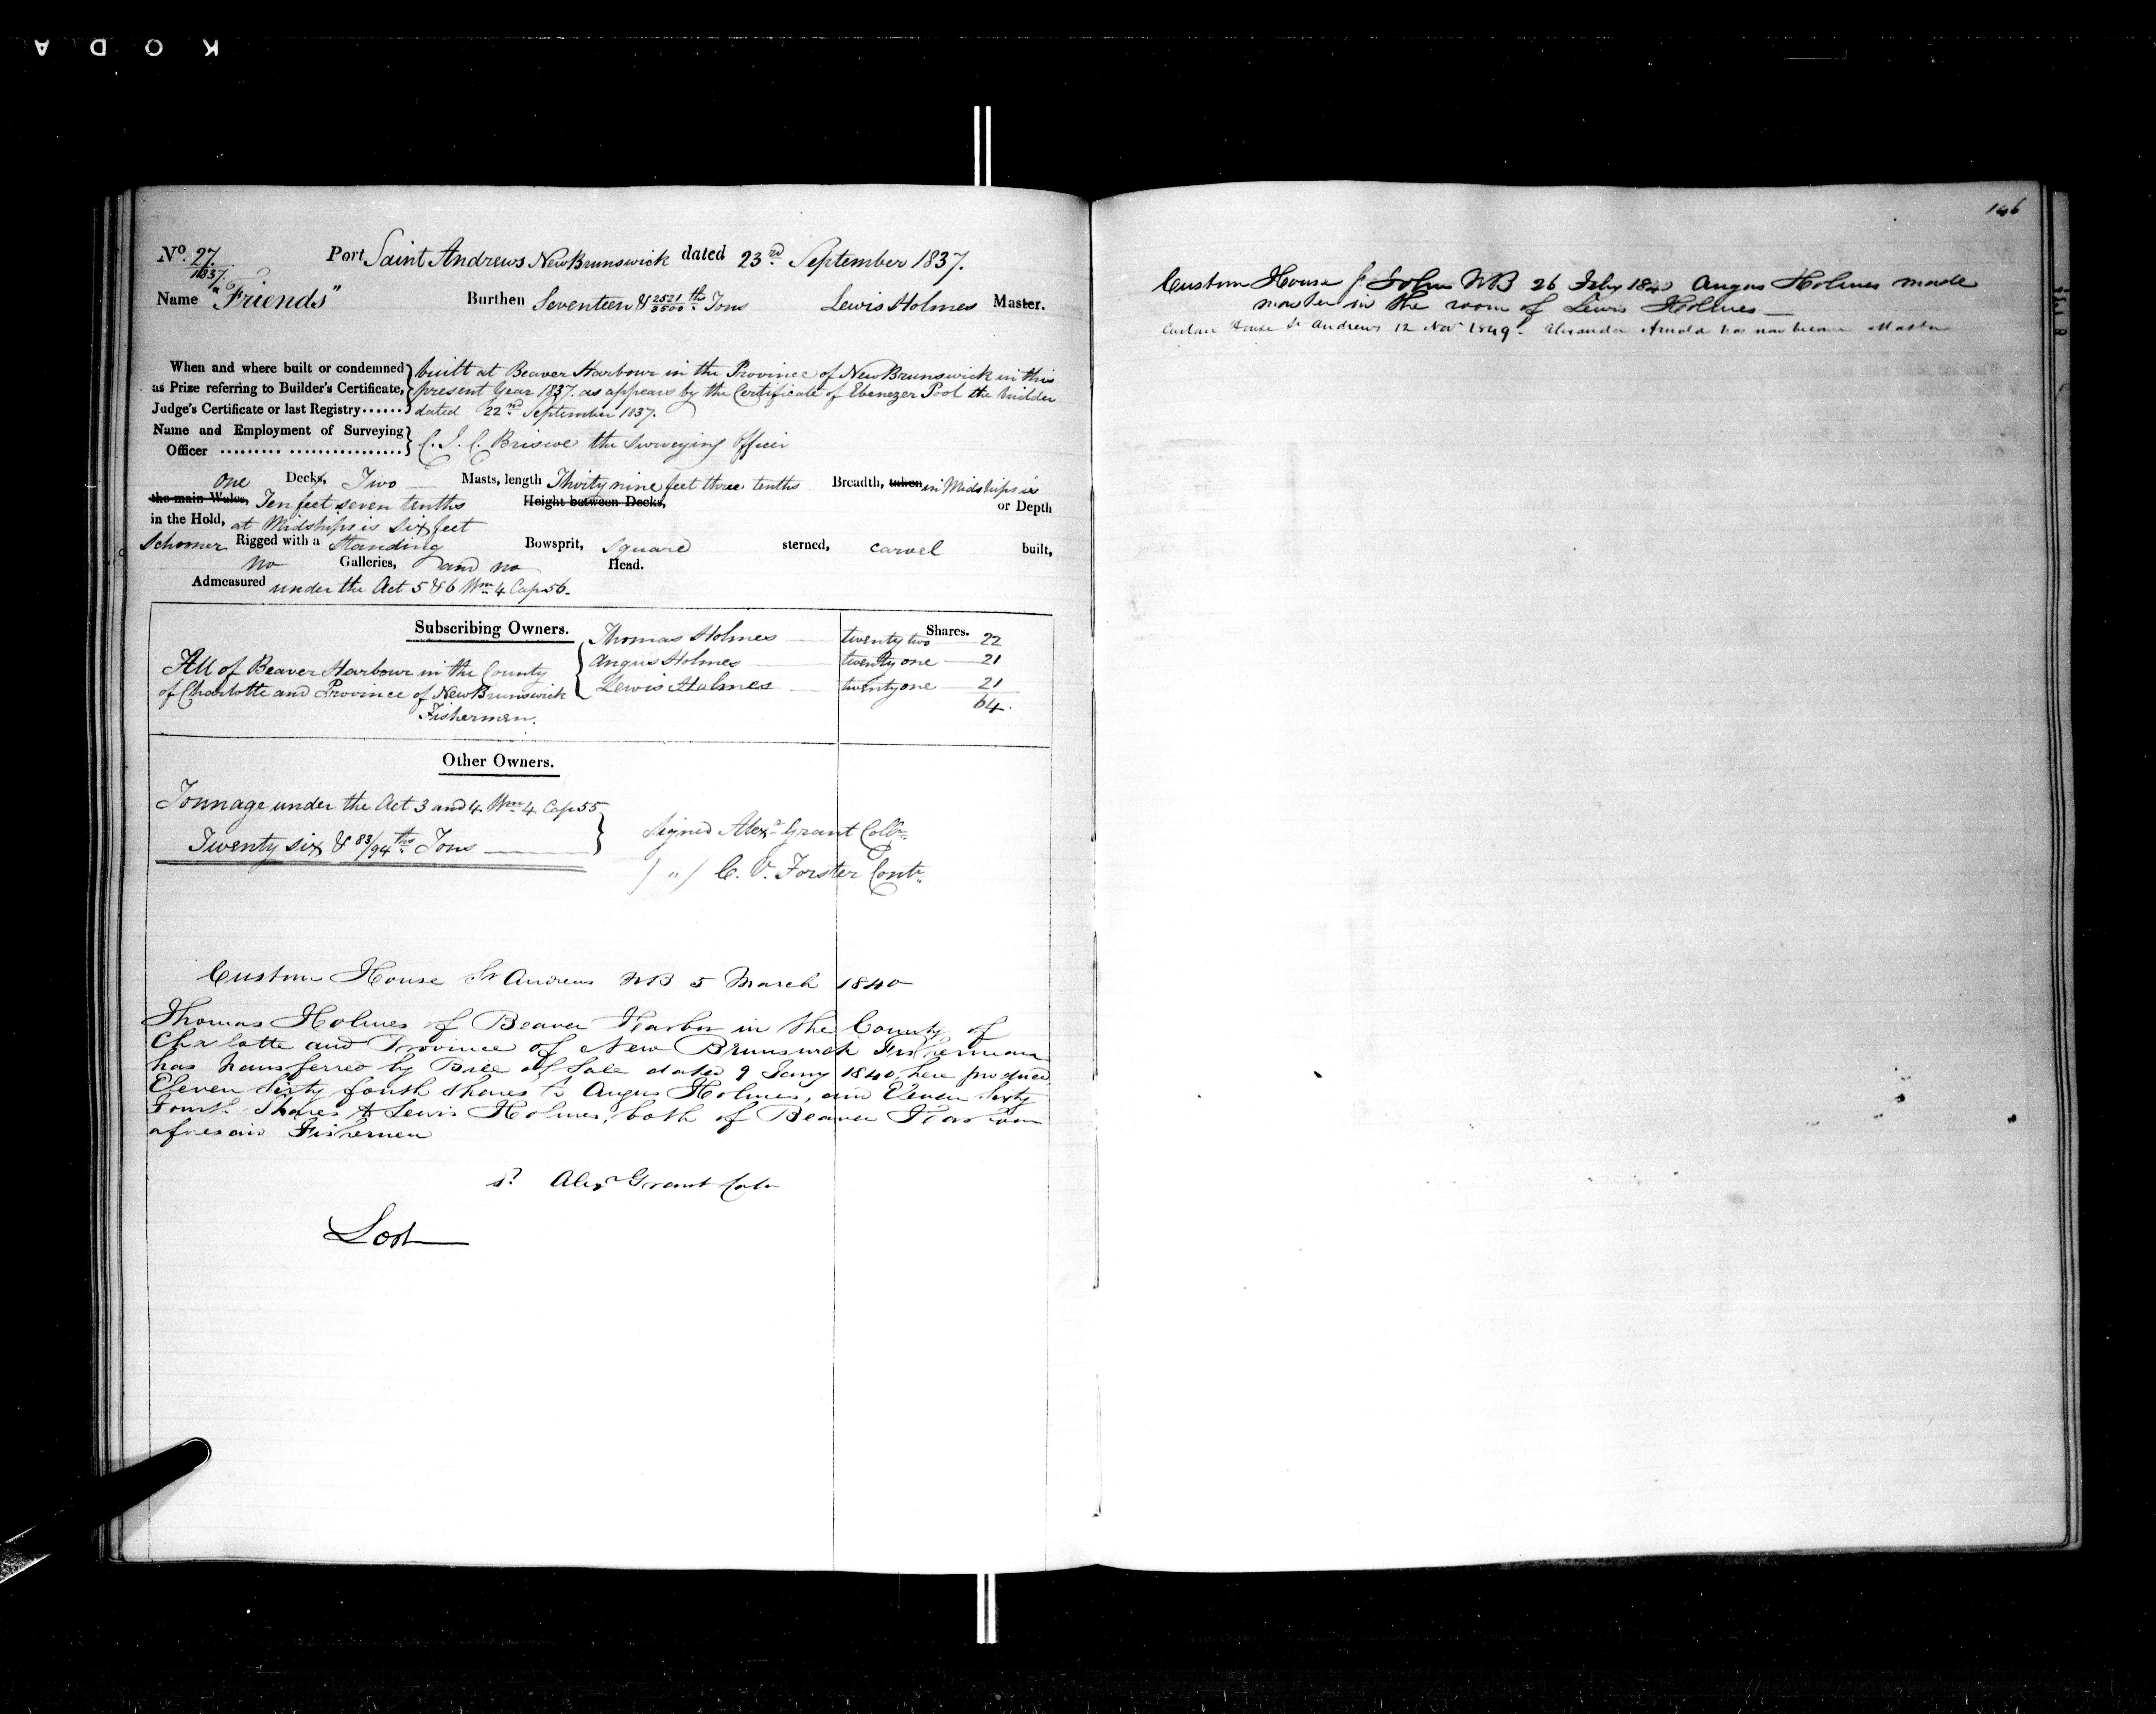 KODA
No. 27
1837.
Port Saint Andrews New Brunswick dated 23rd September 1837.
Name "Friends" Burthen Seventeen & 2521/3500 ths Tons Lewis Holmes Master.
When and where built or condemned
as Prize referring to Builder's Certificate,
Judge's Certificate or last Registry......
built at Beaver Harbour in the Province of New Brunswick in this
present Year 1837. as appears by the Certificate of Ebenezer Pool the builder
dated 22nd September 1837.
Name and Employment of Surveying
Officer
C. J. C. Briscoe the Surveying Officer
One Decks, Two Masts, length Thirty nine feet three tenths Breadth, taken in Midships is
the main Wales, Ten feet seven tenths Height between Decks, or Depth
in the Hold, at Midships is six feet
Schooner Rigged with a Standing Bowsprit, square sterned, carvel built,
no Galleries, and no Head.
Admeasured under the Act 5 & 6 Wm 4 Cap 56.
Subscribing Owners. Shares.
All of Beaver Harbour in the County
of Charlotte and Province of New Brunswick
Fishermen.
Thomas Holmes twenty two 22
Angus Holmes twenty one 21
Lewis Holmes twenty one 21
64.
Other Owners.
Tonnage under the Act 3 and 4 Wm 4 Cap 55
Twenty six & 83/94 ths Tons
Signed Alexr Grant Collr
/ " / C. V. Forster Contr
Custom House St Andrews NB 5 March 1840
Thomas Holmes of Beaver Harbor in the County of
Charlotte and Province of New Brunswick Fisherman
has transferred by Bill of Sale dated 9 Jany 1840, here produced
Eleven Sixty fourth shares to Angus Holmes, and Eleven Sixty
Fourth Shares to Lewis Holmes, both of Beaver Harbour
aforesaid Fishermen
sd Alexr Grant Colr
Lost
146
Custom House St John NB 26 Feby 1840 Angus Holmes made
master in the room of Lewis Holmes
Custom House St Andrews 12 Nov 1849. Alexander Arnold has now became Master